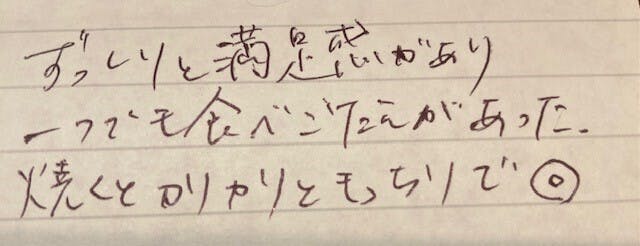 ずっしりと満足感があり
一つでも食べごたえがあった.
焼くとカリカリともっちりで◎